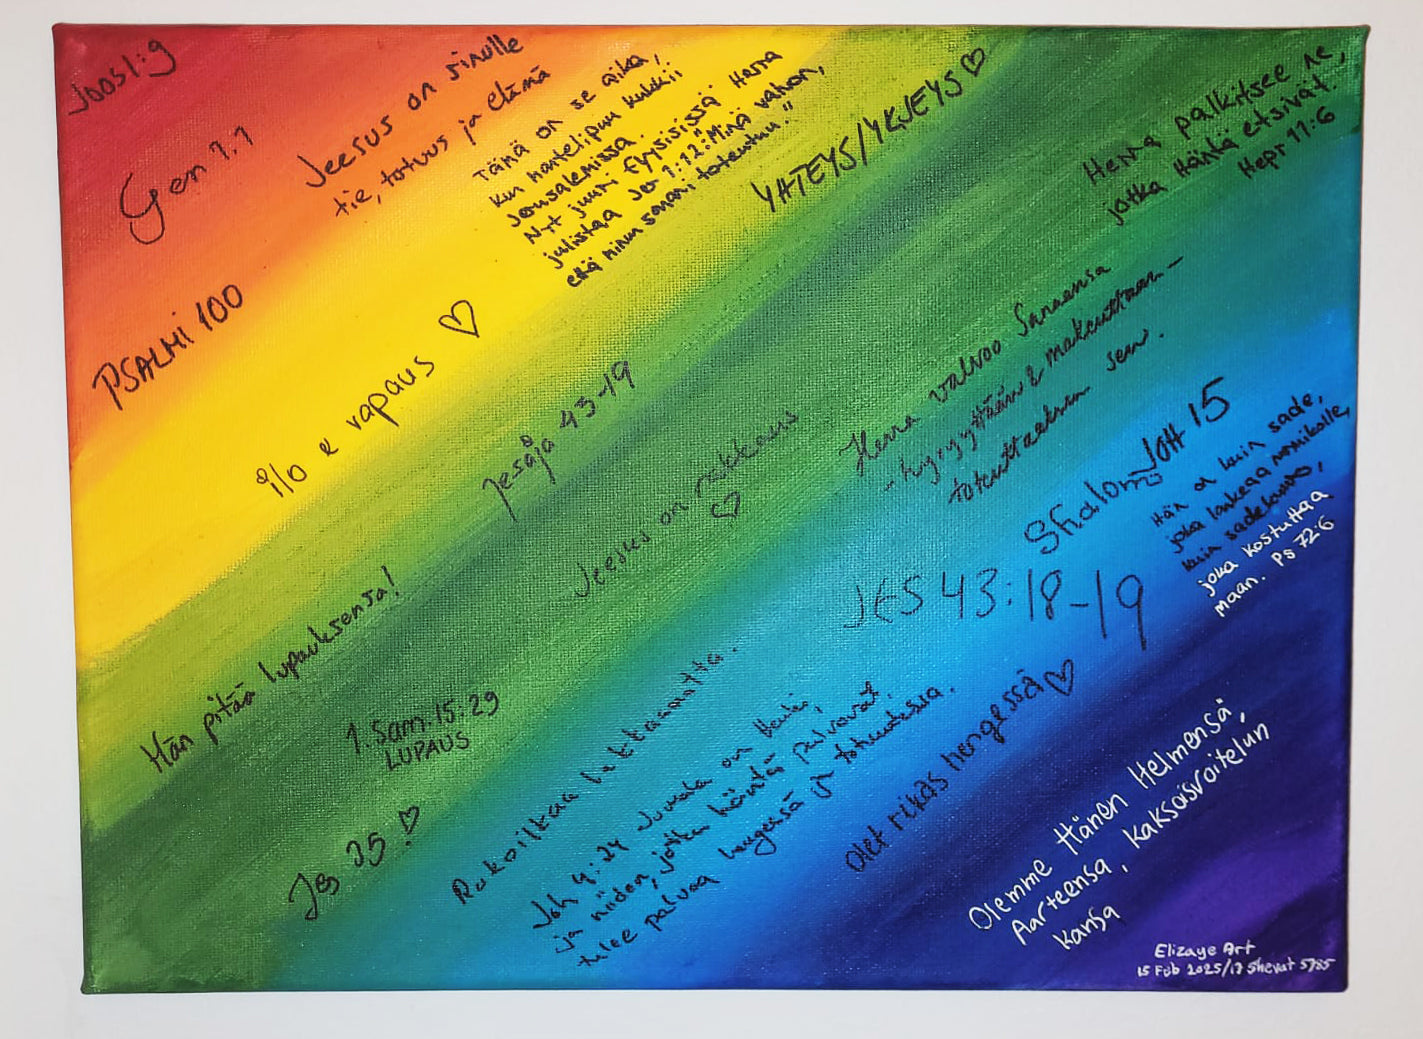 Joos1:9
Gen 1:1
Jeesus on sinulle
tie, totuus ja elämä
Tämä on se aika,
kun mantelipuu kukkii
Jerusalemissa.
Nyt juuri fyysisissä Herra
julistaa Jer 1:12: "Minä valvon,
että minun sanani toteutuu."
YHTEYS/YKSEYS ♡
Herra palkitsee ne,
jotka Häntä etsivät.
Hepr 11:6
PSALMI 100
ilo & vapaus ♡
Jesaja 43-19
Jeesus on rakkaus
♡
Herra valvoo Sanaansa
toteuttaakseen sen.
Shalom JOH 15
Hän on kuin sade,
joka lankeaa nurmikolle,
kuin sadekuuro,
joka kostuttaa
maan. Ps 72:6
JES 43:18-19
Hän pitää lupauksensa!
1.Sam.15:29
LUPAUS
Jes 35 ♡
Rukoilkaa lakkaamatta.
Joh 4:24 Jumala on Henki,
ja niiden, jotka häntä palvovat,
tulee palvoa hengessä ja totuudessa.
Olet rikas hengessä ♡
Olemme Hänen Helmensä,
Aarteensa, Kaksoisvoitelun
kansa
Elizaye Art
15 Feb 2025/17 Shevat 5785